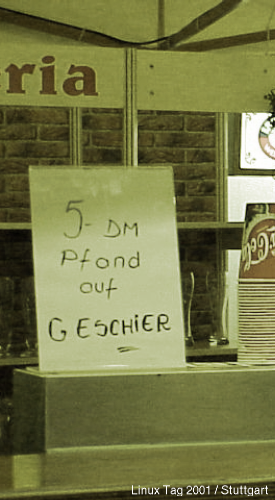 ria
5,- DM
Pfand
auf
GESCHiER
Linux Tag 2001 / Stuttgart